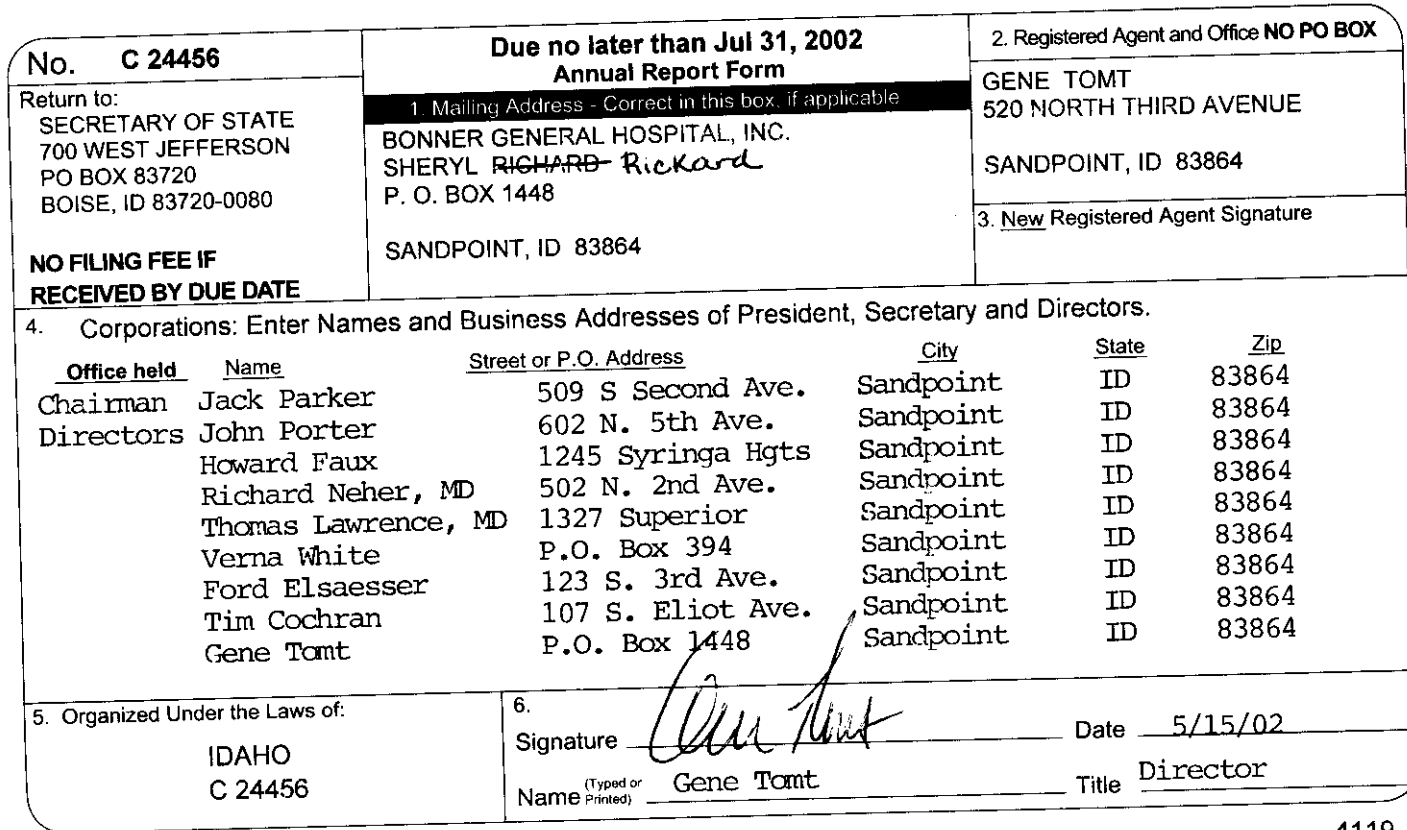 No. C 24456
Return to:
SECRETARY OF STATE
700 WEST JEFFERSON
PO BOX 83720
BOISE, ID 83720-0080
NO FILING FEE IF
RECEIVED BY DUE DATE
Due no later than Jul 31, 2002
Annual Report Form
1. Mailing Address - Correct in this box, if applicable
BONNER GENERAL HOSPITAL, INC.
SHERYL RICHARD Rickard
P. O. BOX 1448
SANDPOINT, ID 83864
2. Registered Agent and Office NO PO BOX
GENE TOMT
520 NORTH THIRD AVENUE
SANDPOINT, ID 83864
3. New Registered Agent Signature
4. Corporations: Enter Names and Business Addresses of President, Secretary and Directors.
Office held Name Street or P.O. Address City State Zip
Chairman Jack Parker 509 S Second Ave. Sandpoint ID 83864
Directors John Porter 602 N. 5th Ave. Sandpoint ID 83864
Howard Faux 1245 Syringa Hgts Sandpoint ID 83864
Richard Neher, MD 502 N. 2nd Ave. Sandpoint ID 83864
Thomas Lawrence, MD 1327 Superior Sandpoint ID 83864
Verna White P.O. Box 394 Sandpoint ID 83864
Ford Elsaesser 123 S. 3rd Ave. Sandpoint ID 83864
Tim Cochran 107 S. Eliot Ave. Sandpoint ID 83864
Gene Tomt P.O. Box 1448 Sandpoint ID 83864
5. Organized Under the Laws of:
IDAHO
C 24456
6.
Signature Gene Tomt Date 5/15/02
Name (Typed or Printed) Gene Tomt Title Director
4119